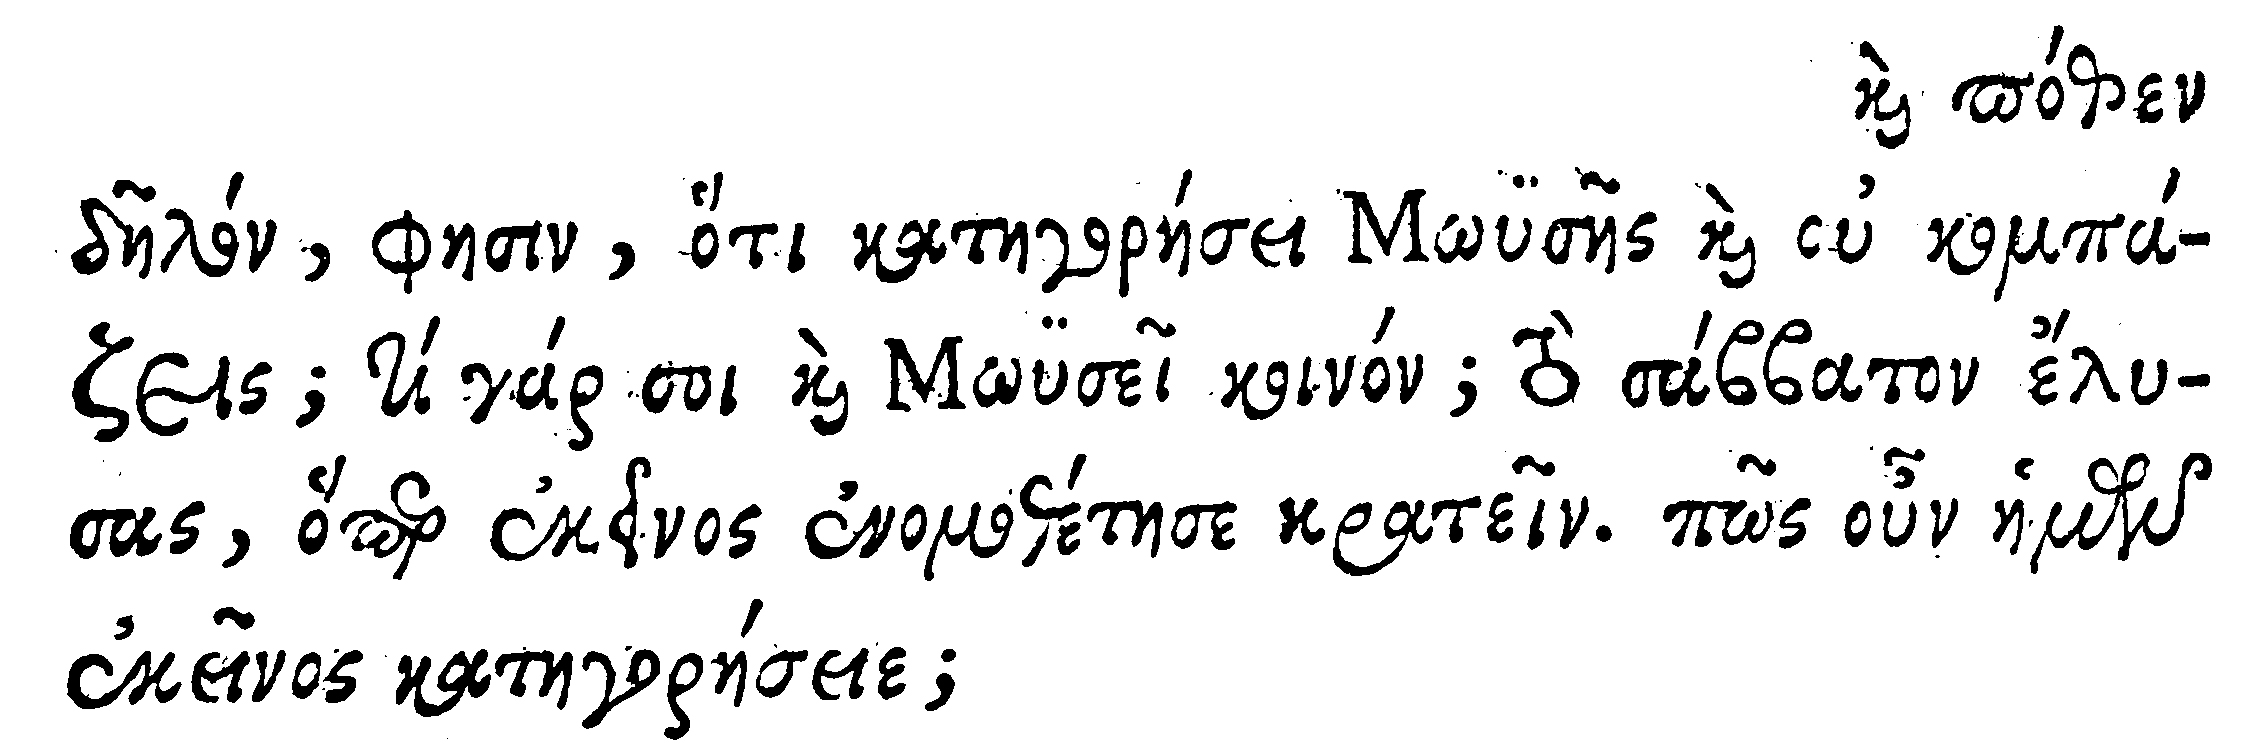 καὶ πόθεν
δῆλόν, φησιν, ὅτι κατηγορήσει Μωϋσῆς καὶ οὐ κομπά-
ζεις; τί γάρ σοι καὶ Μωϋσεῖ κοινόν; τὸ σάββατον ἔλυ-
σας, ὅπερ ἐκεῖνος ἐνομοθέτησε κρατεῖν. πῶς οὖν ἡμῶν
ἐκεῖνος κατηγορήσειε;